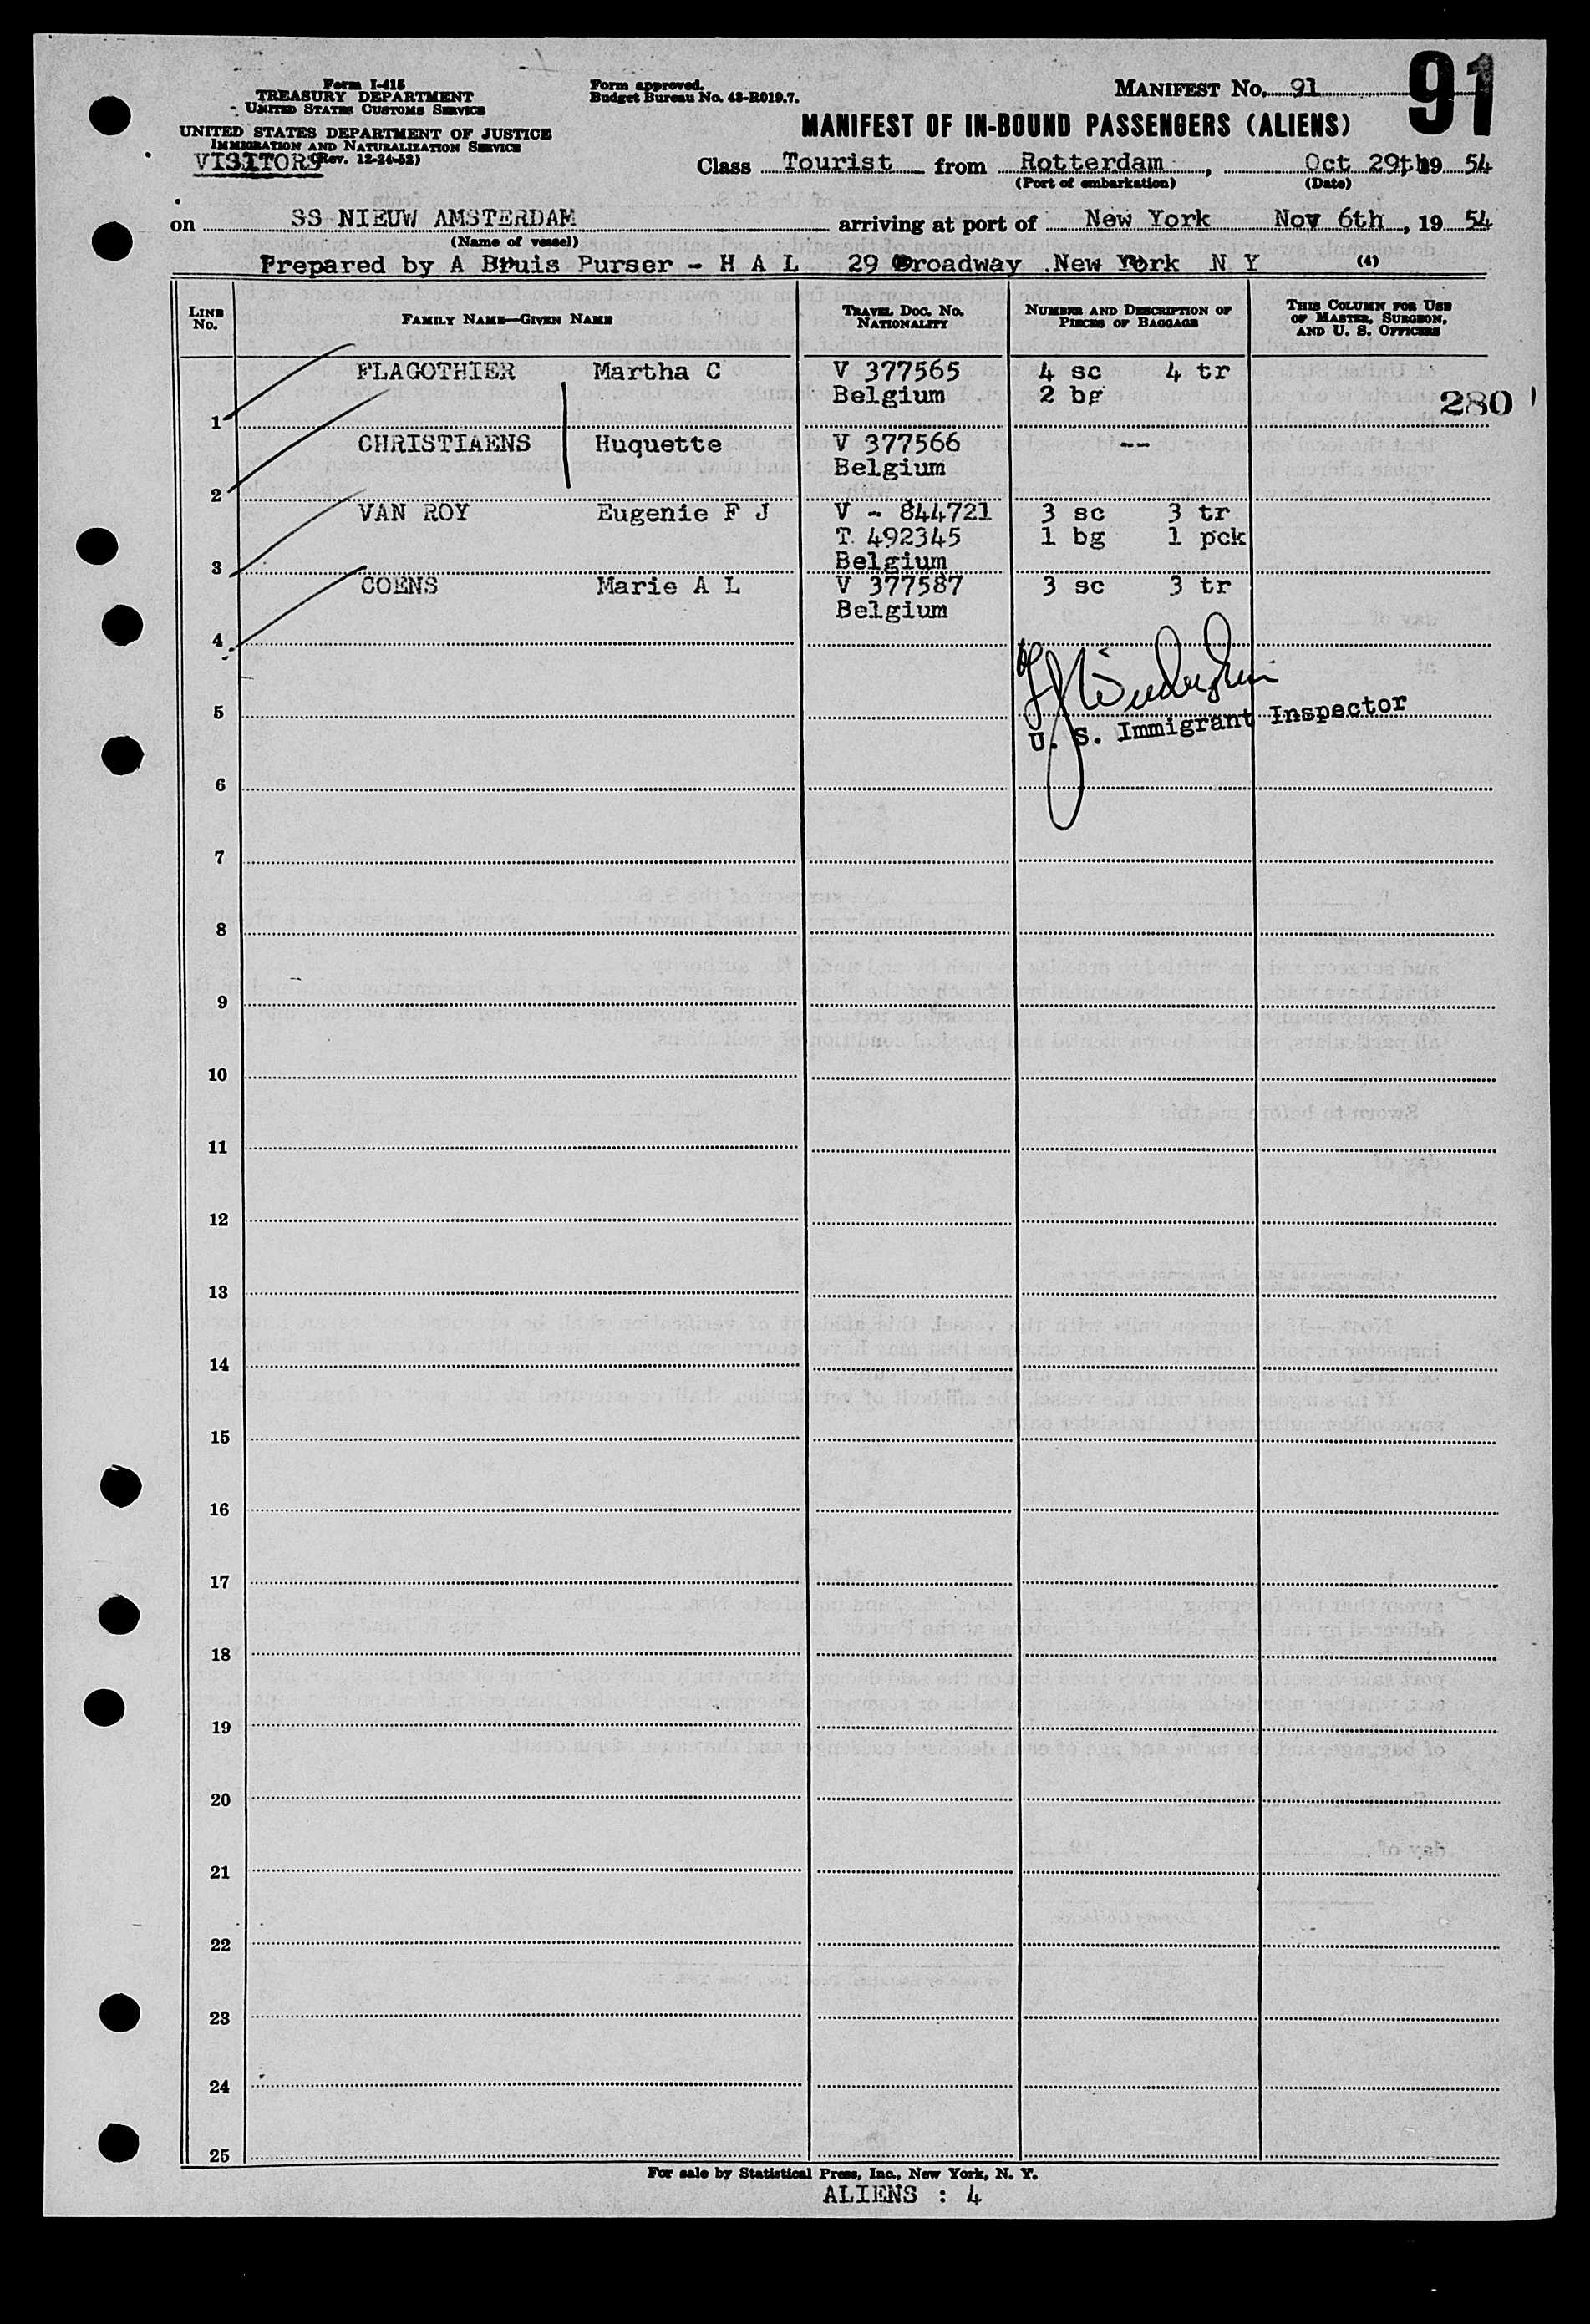 Form I-415
TREASURY DEPARTMENT
UNITED STATES CUSTOMS SERVICE
UNITED STATES DEPARTMENT OF JUSTICE
IMMIGRATION AND NATURALIZATION SERVICE
(Rev. 12-24-52)
VISITORS
Form approved.
Budget Bureau No. 43-R019.7.
MANIFEST No. 91
91
MANIFEST OF IN-BOUND PASSENGERS (ALIENS)
Class Tourist from Rotterdam, Oct 29th 19 54
(Port of embarkation) (Date)
on SS NIEUW AMSTERDAM arriving at port of New York Nov 6th, 19 54
(Name of vessel)
Prepared by A Bruis Purser - H A L 29 Broadway New York N Y (4)
LINE No. FAMILY NAME—GIVEN NAME TRAVEL DOC. No. NATIONALITY NUMBER AND DESCRIPTION OF PIECES OF BAGGAGE THIS COLUMN FOR USE OF MASTER, SURGEON, AND U. S. OFFICERS
FLAGOTHIER Martha C V 377565 4 sc 4 tr
Belgium 2 bg
1 280
CHRISTIAENS Huquette V 377566 --
Belgium
2
VAN ROY Eugenie F J V - 844721 3 sc 3 tr
T. 492345 1 bg 1 pck
3 Belgium
COENS Marie A L V 377587 3 sc 3 tr
Belgium
4
5
U. S. Immigrant Inspector
6
7
8
9
10
11
12
13
14
15
16
17
18
19
20
21
22
23
24
25
For sale by Statistical Press, Inc., New York, N. Y.
ALIENS : 4